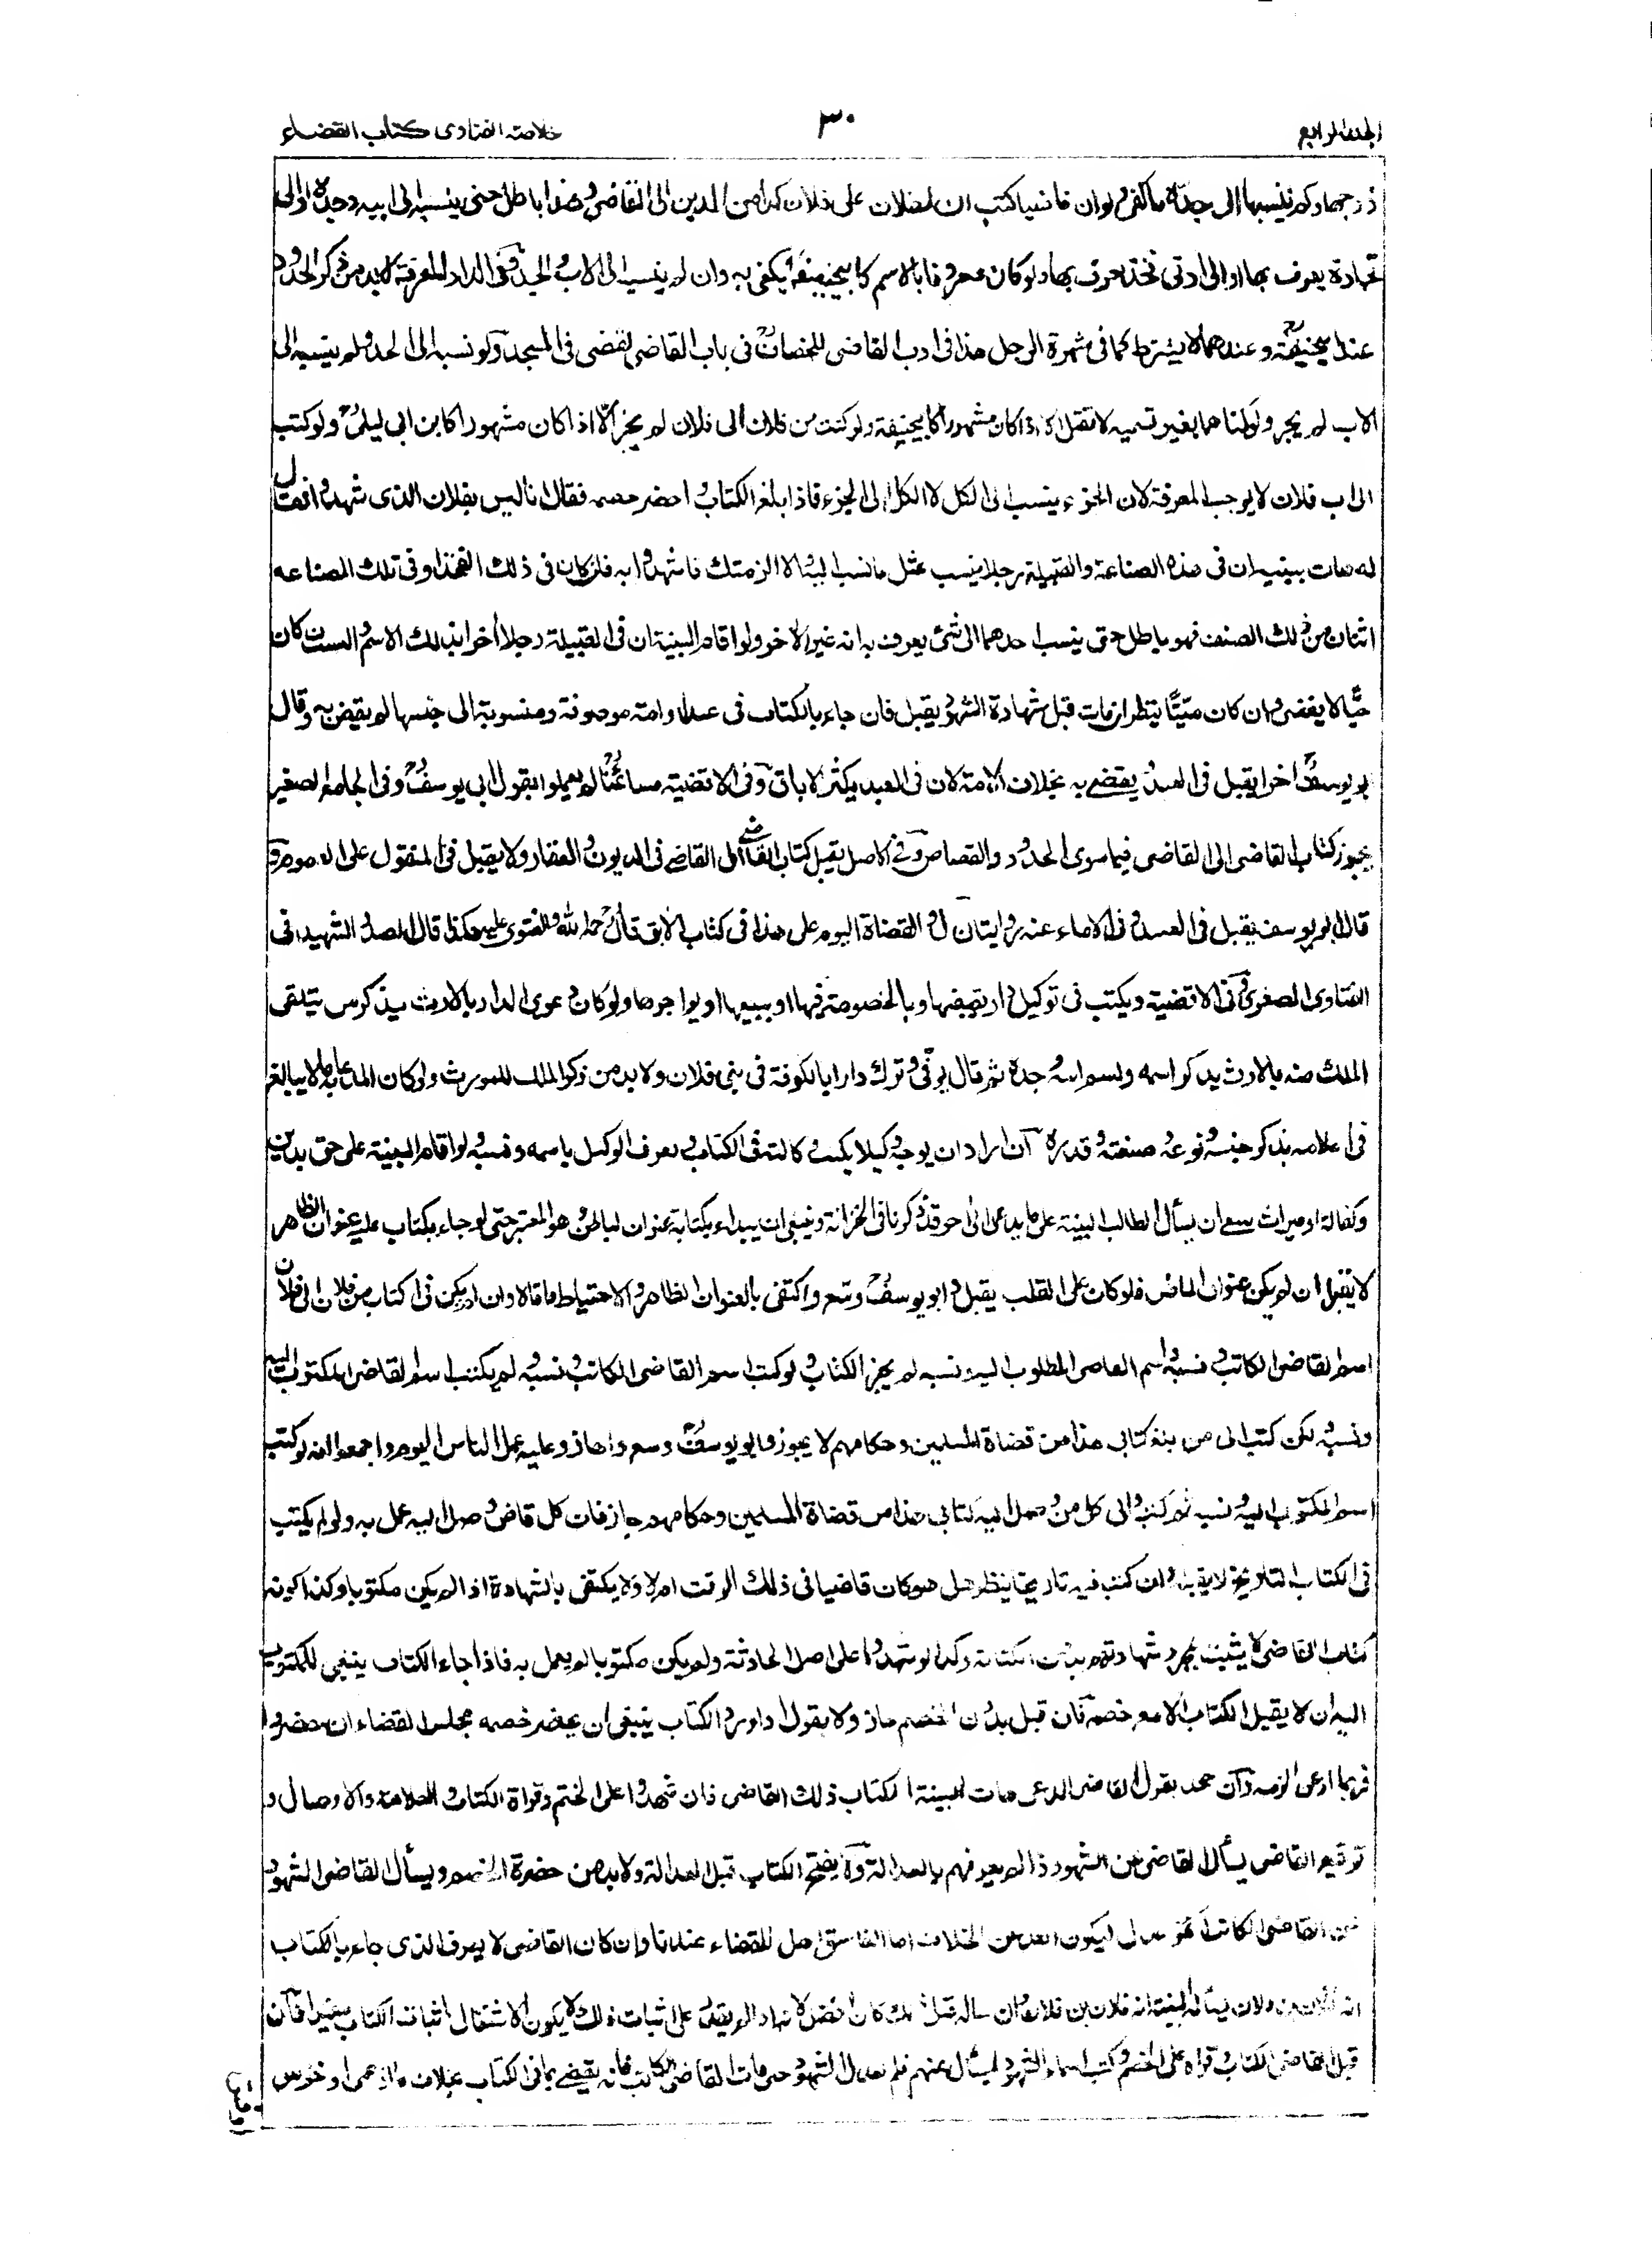 الجلد الرابع
٣٠
خلاصة الفتاوى كتاب القضاء
زوجها ولم ينسبها الى جدها كفى ولو ان قاضيا كتب ان لفلان على فلان كذا من الدين الى القاضى هذا باطل حتى ينسبه الى ابيه وجده او الى
يعرف بها او الى ادنى فخذ يعرف بها ولو كان معروفا بالاسم كابيحنيفة يكفى به وان لم ينسب الى الاب والجد وفى الدار للمعرفة لابد من ذكر الحدود
عند ابيحنيفة وعندهما لا يشترط كما فى شهرة الرجل هذا فى ادب القاضى للخصاف فى باب القاضى يقضى فى المسجد ولو نسبه الى الجد ولم ينسبه الى
الاب لم يجز ولو كناهما بغير تسمية لا تقبل الا اذا كان مشهورا كابيحنيفة ولو كتب من فلان الى فلان لم يجز الا اذا كان مشهورا كابن ابى ليلى ولو كتب
الى اب فلان لا يوجب المعرفة لان الجزء ينسب الى الكل لا الكل الى الجزء فاذا بلغ الكتاب احضر خصمه فقال انا ليس بفلان الذى شهدوا فقال
له هات ببينة ان فى هذه الصناعة والقبيلة رجلا ينسب بمثل ما نسب اليه والا الزمتك فاشهدوا به فان كان فى ذلك الفخذ او فى تلك الصناعه
اثنان من ذلك الصنف فهو باطل حتى ينسب احدهما الى شئ يعرف به انه غير الاخر ولو اقام البينة ان فى القبيلة رجلا اخر بذلك الاسم والنسب ان كان
حيًّا لا يقضى وان كان ميّتًا ينظر ان مات قبل شهادة الشهود يقبل فان جاء بالكتاب فى عبد او امة موصوفة ومنسوبة الى جنسها لم يقض به وقال
ابو يوسف اخرا يقبل فى العبد يقضى به بخلاف الامة لان فى العبد يكثر الاباق وفى الاقضية مسائخنا لم يعملوا بقول ابى يوسف وفى الجامع الصغير
يجوز كتاب القاضى الى القاضى فيما سوى الحدود والقصاص وفى الاصل يقبل كتاب القاضى الى القاضى فى الديون والعقار ولا يقبل فى المنقول على العموم و
قال ابو يوسف يقبل فى العبد وفى الاماء عنه روايتان القضاة اليوم على هذا فى كتاب الابق قال رحمه الله والفتوى عليه هكذا قال الصدر الشهيد فى
الفتاوى الصغرى وفى الاقضية ويكتب فى توكيل دار بقبضها وبالخصومة فيها او ببيعها او يواجرها ولو كان دعوى الدار بالارث يذكر من يتلقى
الملك منه بالارث يذكر اسمه واسم ابيه وجده ثم قال توفى وترك دارا بالكوفة فى بنى فلان ولابد من ذكر الملك للمورث ولو كان المدعى به
فى اعلامه يذكر جنسه ونوعه وصفته وقدره ان اراد ان يوجه وكيلا يكتب وكالته فى الكتاب يعرف الوكيل باسمه ونسبه ولو اقام البينة على حق بدين
وكفالة او ميراث يسأل الطالب البينة على ما يدعى وقد ذكرنا فى الخزانة وينبغى ان يبداء بكتابة عنوان الباطن وهو المعتبر حتى لو جاء بكتاب عليه عنوان الظاهر
لا يقبل ان لم يكن عنوان الباطن فلو كان على القلب يقبل وابو يوسف وسّع واكتفى بالعنوان الظاهر والاحتياط ما قالا وان لم يكن فى الكتاب من فلان الى فلان
اسم القاضى الكاتب ونسبه واسم القاضى المطلوب اليه ونسبه لم يجز الكتاب ولو كتب اسم القاضى الكاتب ونسبه لم يكتب اسم القاضى المكتوب اليه
ونسبه لكن كتب الى من بلغ كتابى هذا من قضاة المسلمين وحكامهم لا يجوز وابو يوسف وسع واجاز وعليه عمل الناس اليوم واجمعوا انه لو كتب
اسم المكتوب اليه ونسبه ثم كتب والى كل من وصل اليه كتابى هذا من قضاة المسلمين وحكامهم جاز فان كل قاض وصل اليه عمل به ولو لم يكتب
فى الكتاب التاريخ لا يقبله وان كتب فيه تاريخا ينظر هل هو كان قاضيا فى ذلك الوقت ام لا ولا يكتفى بالشهادة اذا لم يكن مكتوبا وكذا كونه
كتاب القاضى لا يثبت بمجرد شهادتهم بدون الكتابة وكذا لو شهدوا على اصل الحادثة ولم يكن مكتوبا لم يعمل به فاذا جاء الكتاب ينبغى للمكتوب
اليه ان لا يقبل الكتاب الا مع خصمه فان قبل بدون الخصم جاز ولا يقول اورد الكتاب ينبغى ان يحضر خصمه مجلس القضاء ان حضر و
فربما ادعى الزمه وان جحد يقول القاضى للمدعى هات البينة الكتاب ذلك القاضى فان شهدوا على الختم وقراة الكتاب العلامة والاوصال و
توقيع القاضى يسأل القاضى عن الشهود اذا لم يعرفهم بالعدالة ولا يفتح الكتاب قبل العدالة ولابد من حضرة الخصم ويسأل القاضى الشهود
عن القاضى الكاتب هو عدل ليكون ابعد من الخلاف اما الفاسق اهل للقضاء عندنا وان كان القاضى لا يعرف الذى جاء بالكتاب
انه فلان بن فلان يسأله البينة انه فلان بن فلان وان ساله قبل ذلك كان افضل على اثبات ذلك لا يكون الاشتغال باثبات الكتاب فان
قبل القاضى الكتاب قراه على الخصم وكتب اسماء الشهود ليسأل عنهم فلم تعدل الشهود حتى مات القاضى الكاتب فانه يقضى بما فى الكتاب بخلاف ما اذا عمى او خرس